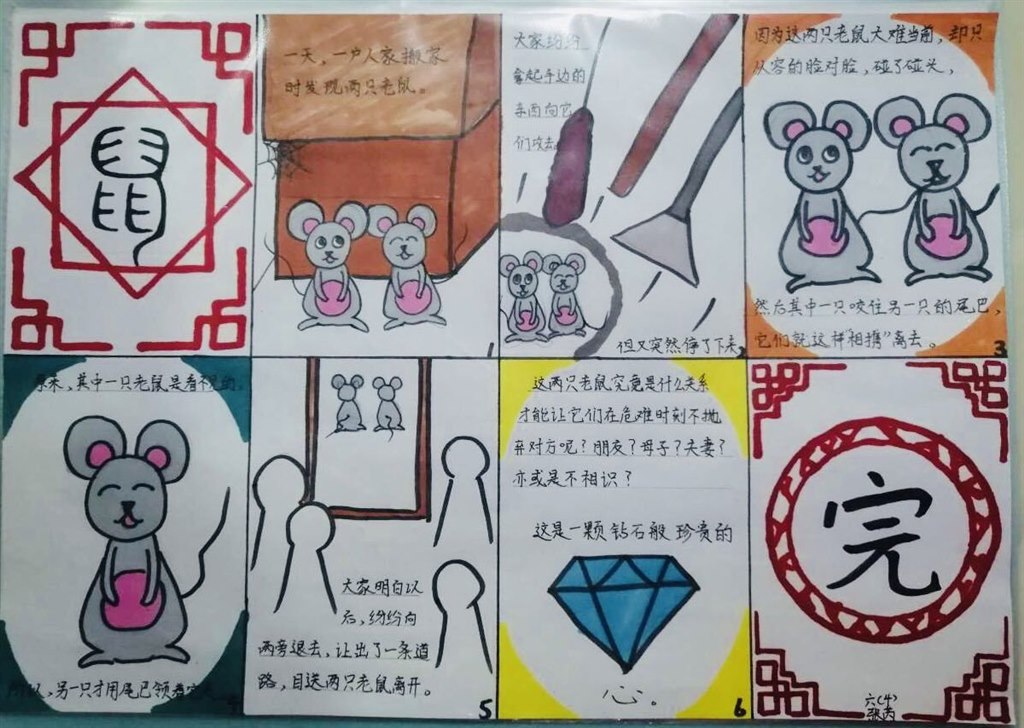 鼠
一天，一户人家搬家
时发现两只老鼠。
1
大家纷纷
拿起手边的
东西向它
们攻去。
但又突然停了下来
2
因为这两只老鼠大难当前，却只
从容的脸对脸，碰了碰头，
然后其中一只咬住另一只的尾巴，
它们就这样“相携”离去。
3
原来，其中一只老鼠是看不见的。
所以，另一只才用尾巴领着它
4
大家明白以
后，纷纷向
两旁退去，让出了一条道
路，目送两只老鼠离开。
5
这两只老鼠究竟是什么关系
才能让它们在危难时刻不抛
弃对方呢？朋友？母子？夫妻？
亦或是不相识？
这是一颗钻石般珍贵的
心。
6
完
六(4)